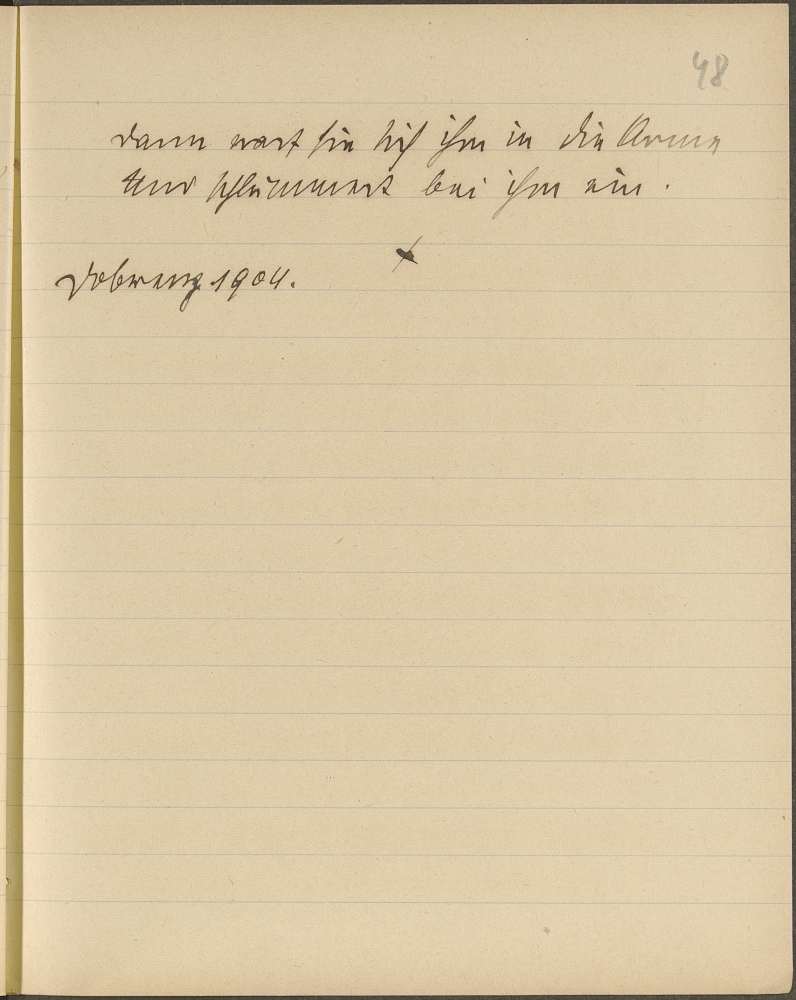 48
dann warf sie sich ihm in die Arme
Und schlummert bei ihm ein.
Dobrweng 1904.